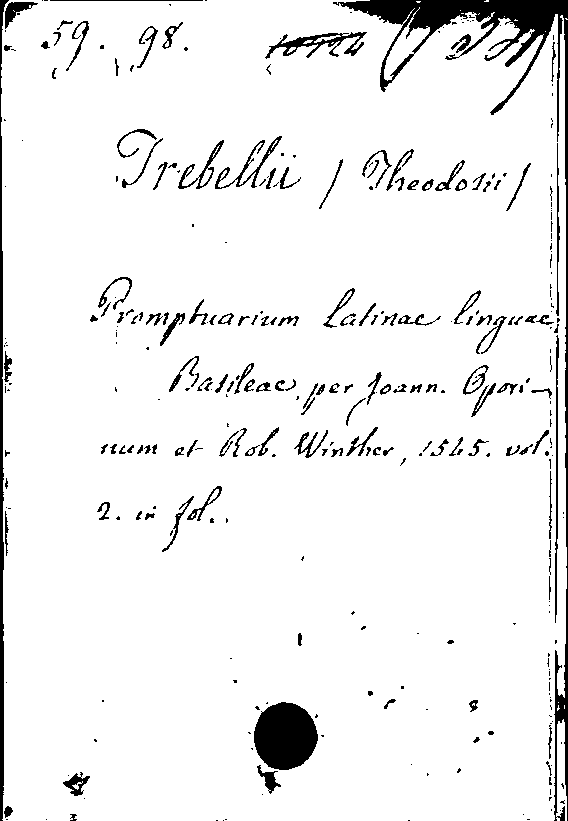 59. 98.
Trebellii / Theodosii /
Promptuarium Latinae linguae
Basileae, per Joann. Opori-
num et Rob. Winther, 1545. vol.
2. in fol.